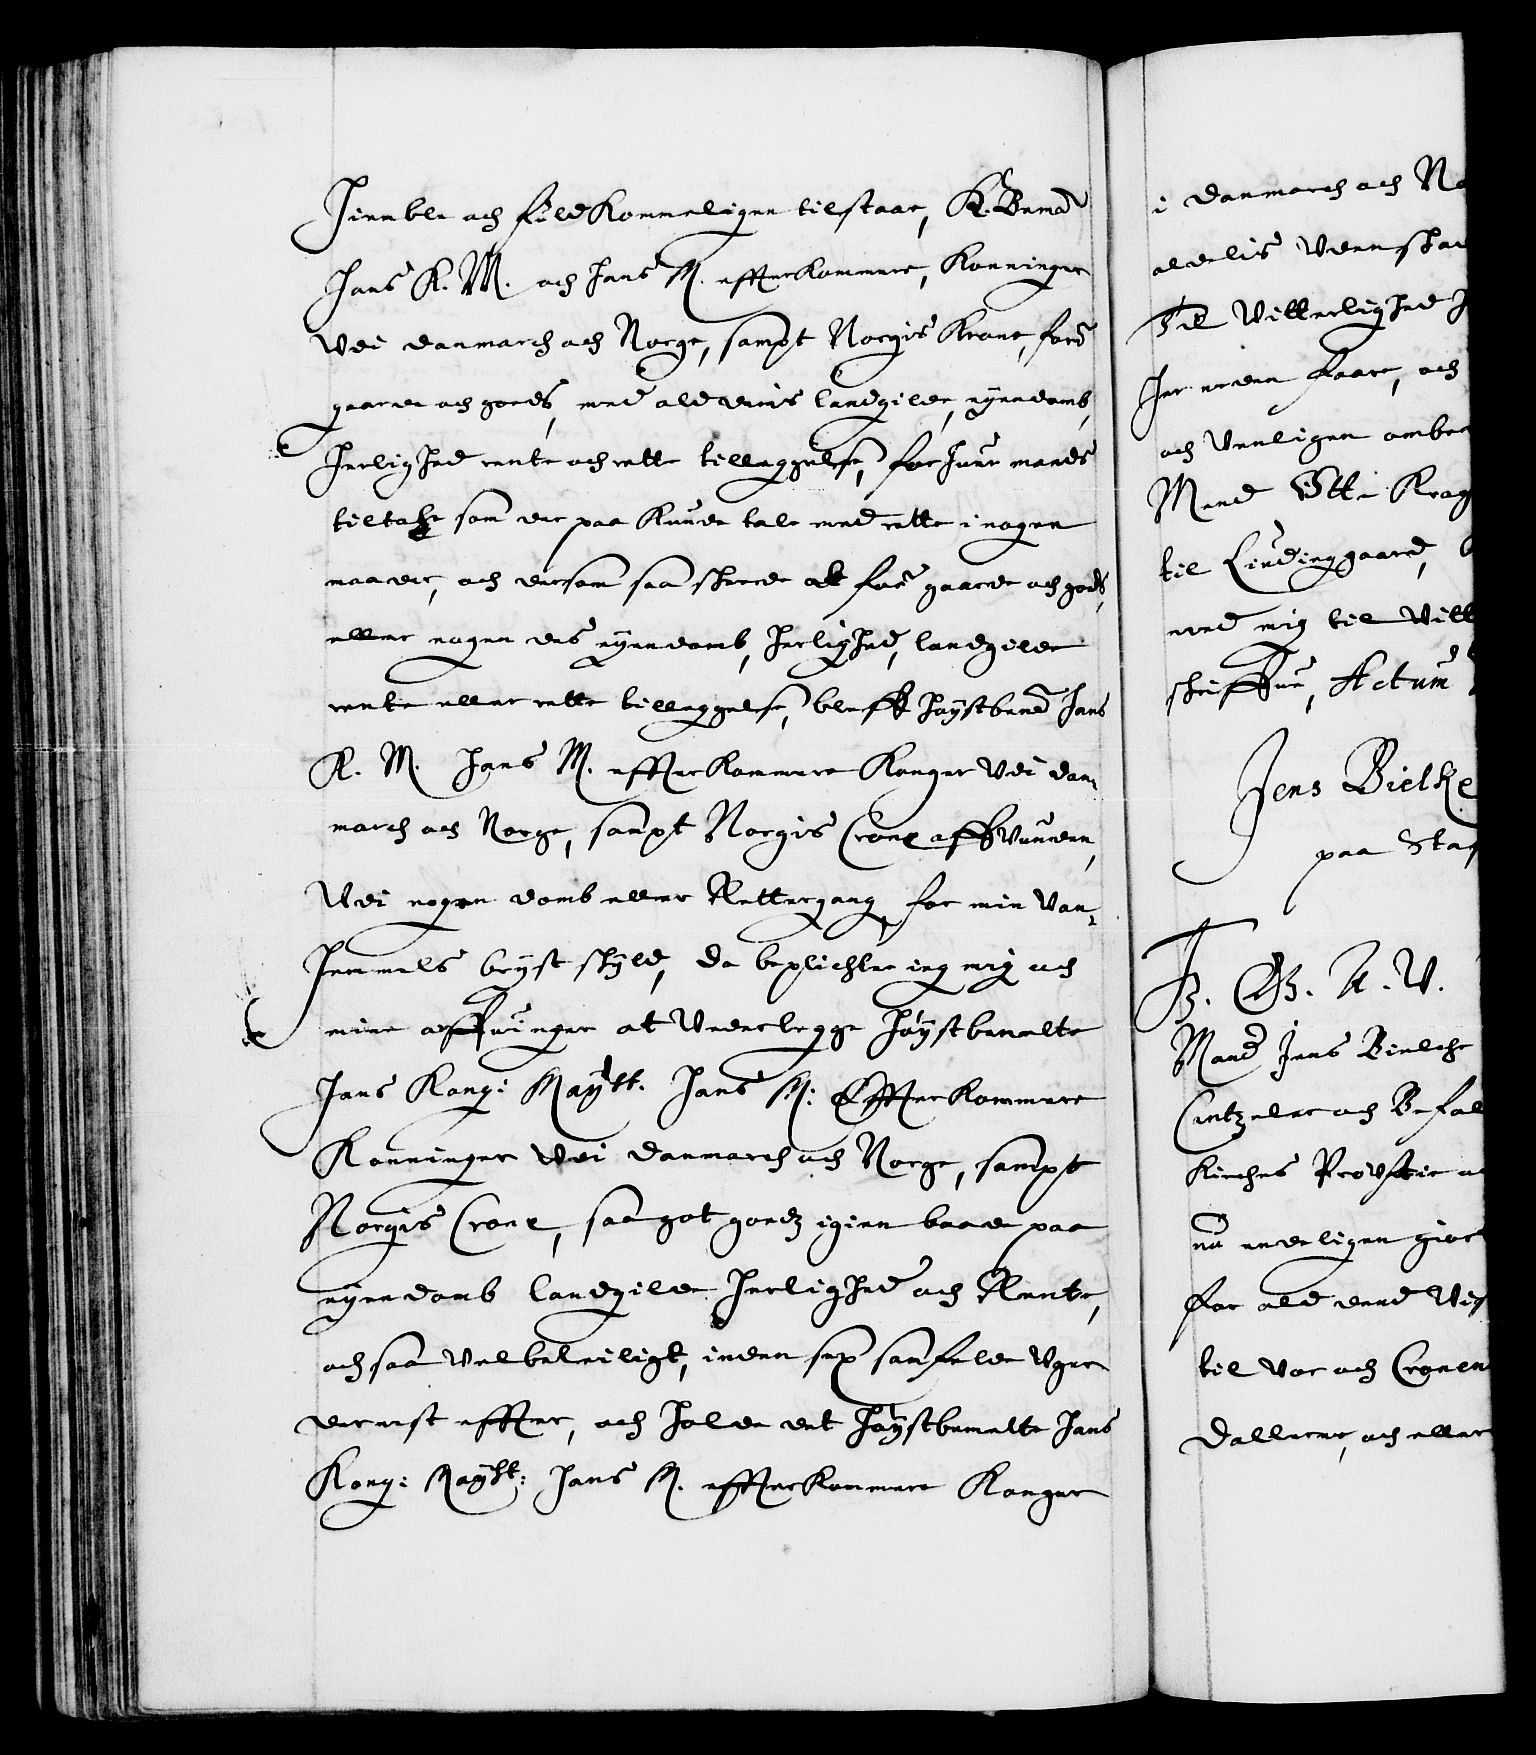 Hiemble och fuldkommeligen tilstaae, K. Bemᵗᵉ
Hans K. M. och Hans M. effterkommere, Konninger
Udi Danmarch och Norge, sampt Norgis Krone, forᵉ
gaarde och goeds, med ald deris landgilde, eyendomb,
herlighed rente och rette tilleggelse, for huer mands
tiltale som der paa kunde tale med rette i nogen
maader, och dersom saa skeede at forᵉ gaarde och gods,
eller nogen des eyendomb, herlighed, landgilde
rente eller rette tilleggelse, bleff høystbemᵗᵉ Hans
K. M. Hans M. effterkommere Konger Udi Dan-
march och Norge, sampt Norgis Crone affvunden,
Udi nogen domb eller Rettergang for min Van-
hemels brøst skyld, da beplichter ieg mig och
mine arffuinger at Vederlegge høystbemelte
Hans Kong: Maytt. Hans M: Effterkommere
Konninger Udi Danmarch och Norge, sampt
Norgis Crone, saa got goedz igien baade paa
eyendomb landgilde herlighed och Rente,
och saa velbeleiligt, inden sex samfelde Uger
dernest effter, och holde det høystbemelte Hans
Kong: Maytt: Hans M. effterkommere Konger
i Danmarch och No
aldelis
Til Vitterlighed
her neden faare, och
och Venligen ombe
Mend Otte Krag
til
med mig til Vitt
schriffue, Actum
Jens Bielke
paa
B. G. A. V.
Mand Jens Bielche
Cantzeler och Befal
Kirches Provstie
nu endeligen gior
for ald dend
til Vor och Cronen
Dallerne, och eller